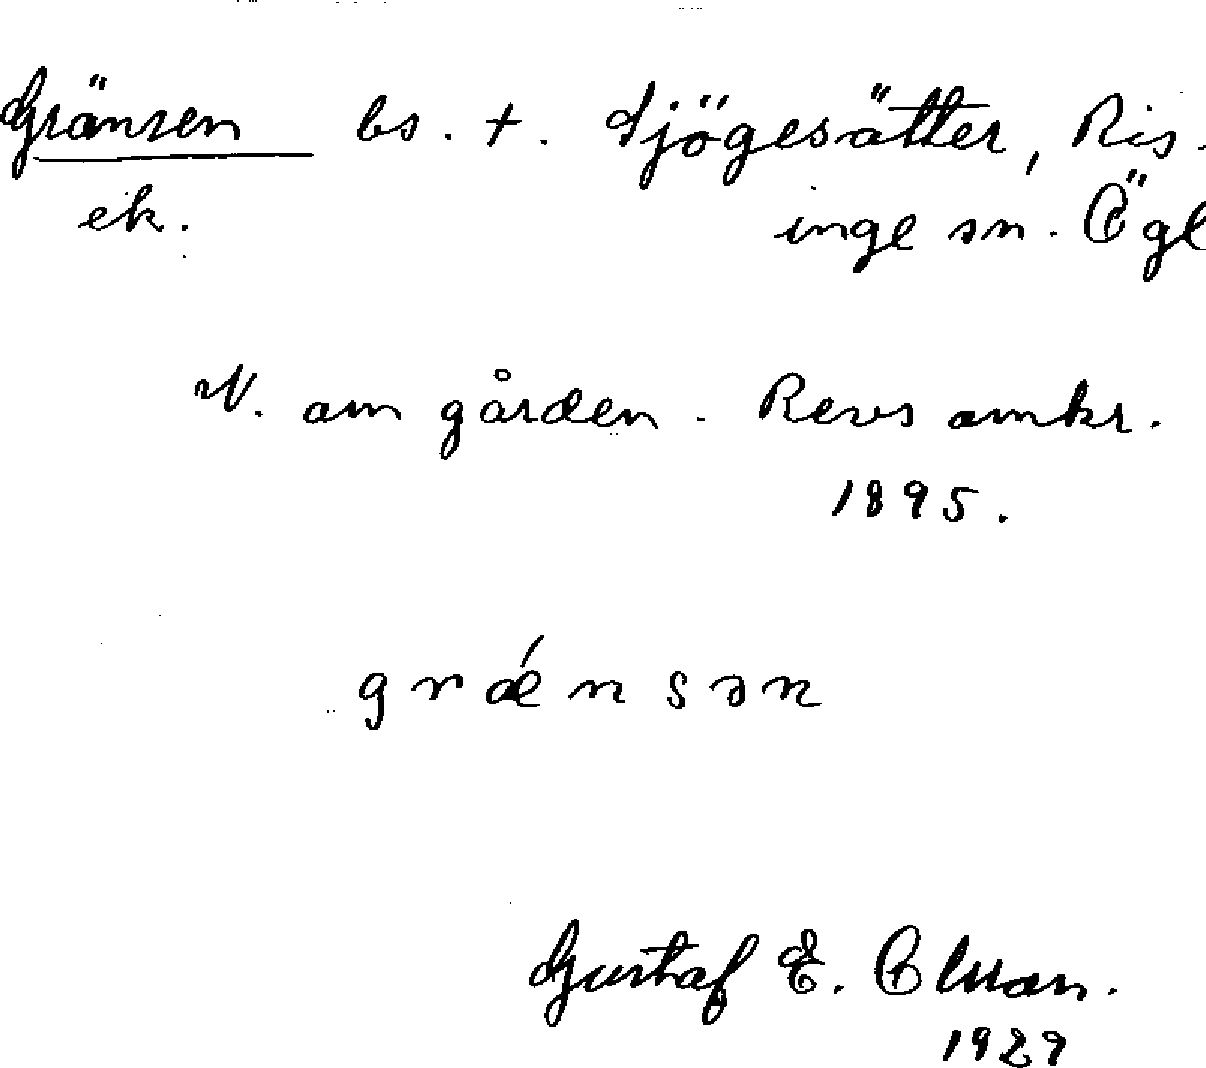 Gränsen bs. t. Sjögesätter, Ris-
ek. inge sn. Ögl
N. om gården. Revs omkr.
1895.
grǽnsən
Gustaf E.
1929